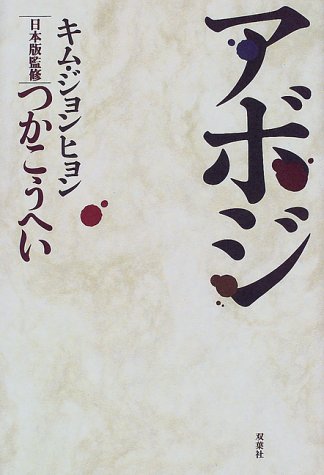 アボジ
キム・ジョンヒョン
日本版監修
つかこうへい
双葉社